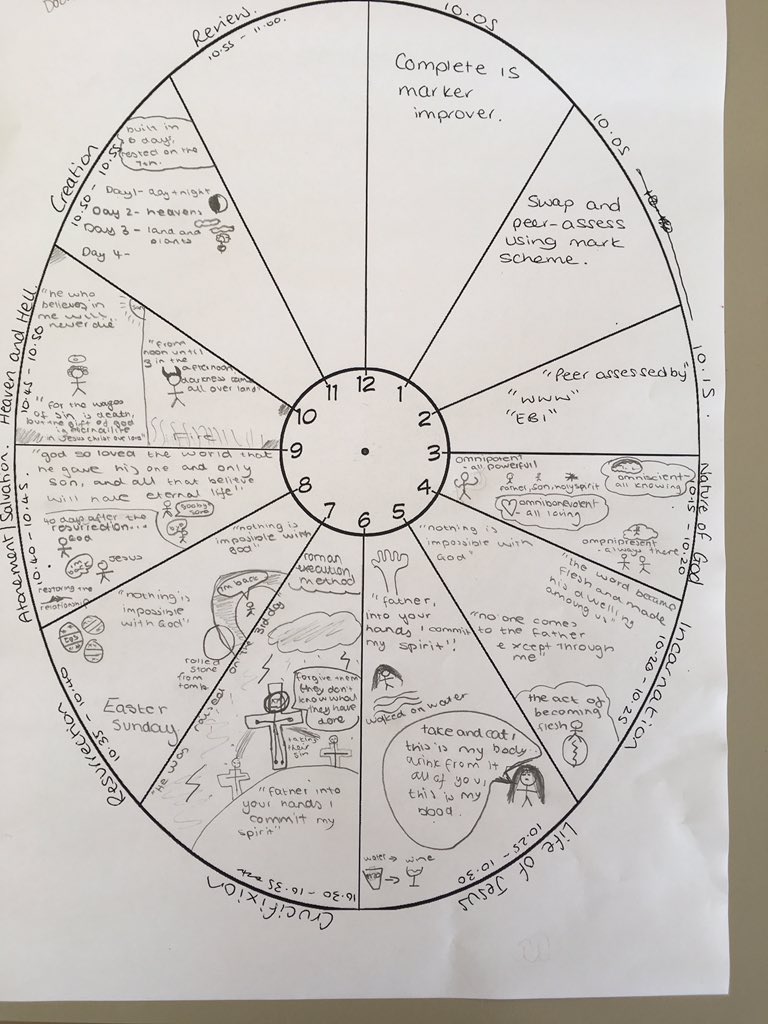 Review.
10.55 - 11.00
10.05
Complete is
marker
improver.
10.05
Swap and
peer-assess
using mark
scheme.
10.15.
"Peer assessed by"
"WWW"
"EBI"
Nature of God
10.15 - 10.20
omnipotent
- all powerfull
Father, son, holy spirit
omniscient
- all knowing
omnibenevolent
- all loving
omnipresent
- always there
Incarnation
10.20 - 10.25
"nothing is
impossible with
God"
"the word became
flesh and made
his dwelling
among us"
"no one comes
to the Father
except through
me"
the act of
becoming
flesh
Life of Jesus
10.25 - 10.30
"father,
into your
hands I commit
my spirit"
walked on water
take and eat,
this is my body.
drink from it
all of you,
this is my
blood.
water → wine
Crucifixion
10.30 - 10.35
roman
execution
method
forgive them
they don't
know what
they have
done
taking
their
sin
"Father into
your hands I
commit my
spirit"
Resurrection
10.35 - 10.40
"nothing is
impossible with
God"
I'm back
ok
"nothing is
impossible
with God"
rolled
stone
from
tomb
"He was
3rd day"
Easter
Sunday
Atonement / Salvation.
10.40 - 10.45
"god so loved the world that
he gave his one and only
son, and all that believe
will have eternal life"
40 days after the
resurrection...
God
Jesus
restoring the
relationship
Heaven and Hell.
10.45 - 10.50
"he who
believes in
me will
never die"
"from
noon until
3 in the
afternoon,
darkness came
all over land"
"for the wages
of sin is death,
but the gift of god
is eternal life
in Jesus Christ our lord"
Creation
10.50 - 10.55
built in
6 days,
rested on the
7th.
Day 1 - day + night
Day 2 - heavens
Day 3 - land and
plants
Day 4 -
12
1
2
3
4
5
6
7
8
9
10
11